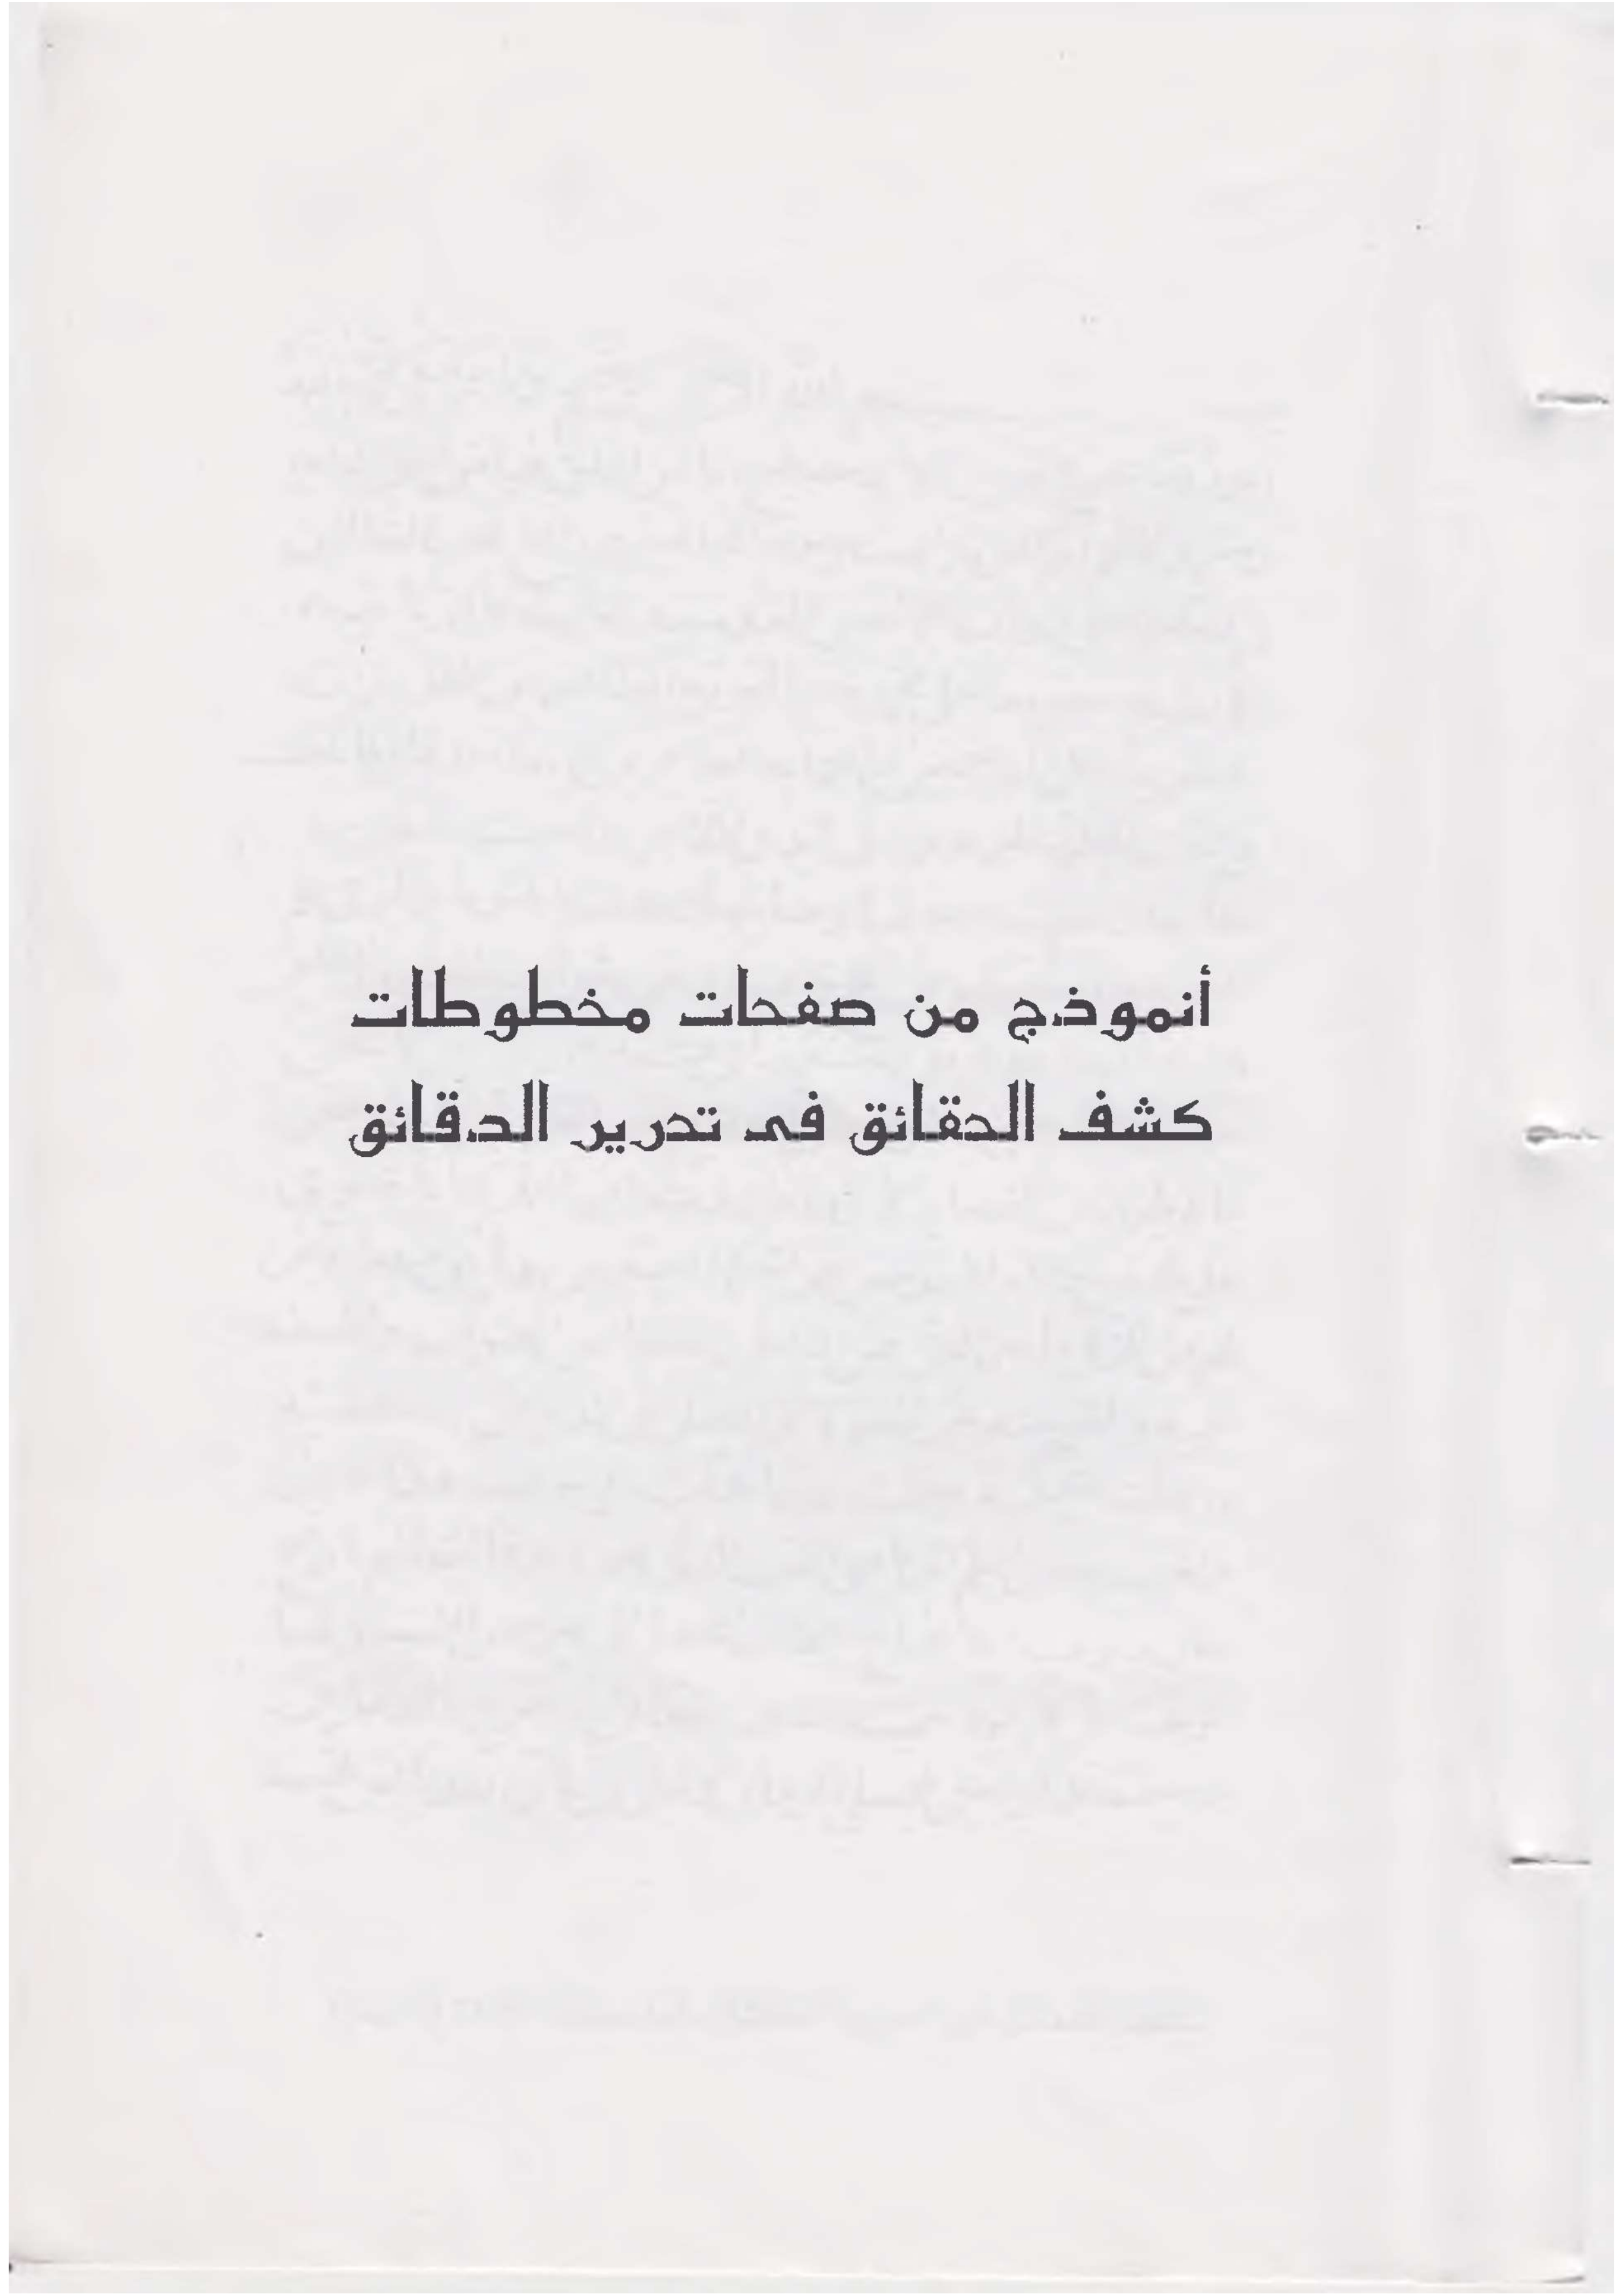 أنموذج من صفحات مخطوطات
كشف الحقائق فى تحرير الدقائق